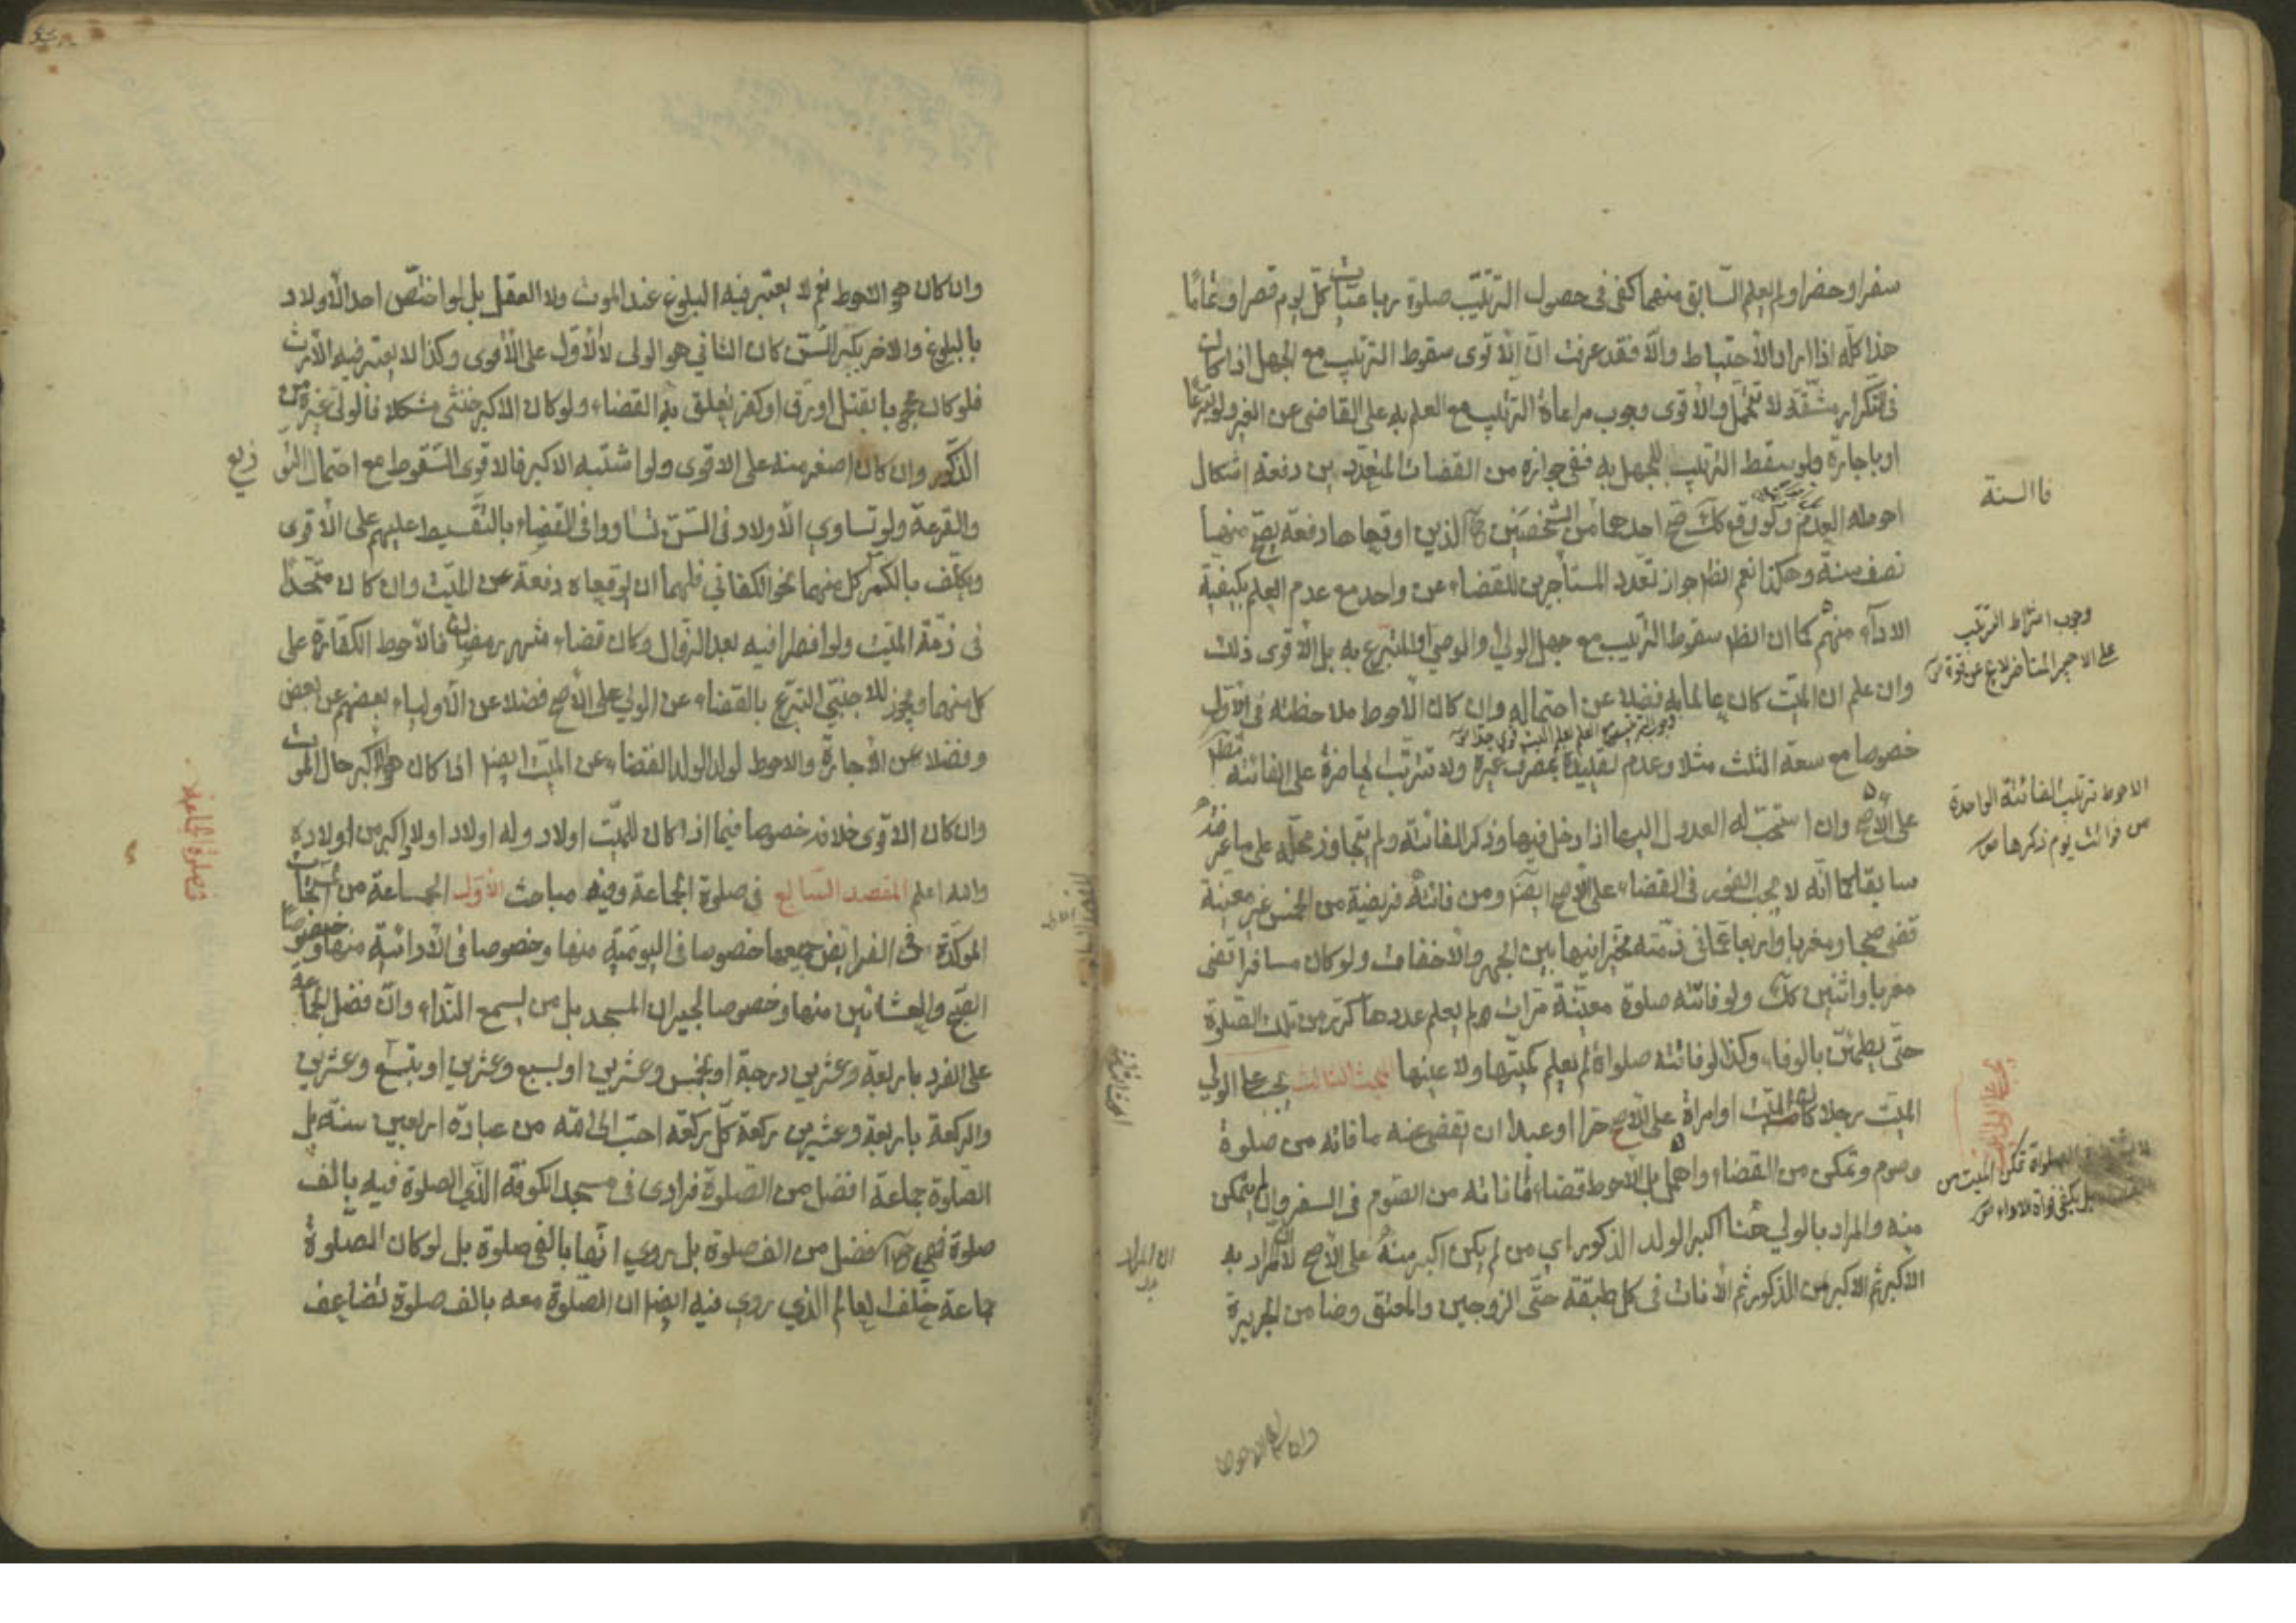 سفرا وحضرا ولم يعلم السابق منهما كفى في حصول الترتيب صلوة رباعيات كل يوم قصرا وتماما
هذا كله اذا اراد الاحتياط والا فقد عرفت ان الاقوى سقوط الترتيب مع الجهل اذا كان
في التكرار مشقة لا تتحمل والاقوى وجوب مراعاة الترتيب مع العلم به على القاضي عن الغير ولو تبرعا
او باجارة ولو سقط الترتيب للجهل به ففي جوازه من القضات المتعددين دفعة اشكال
احوطه العدم ولو وقع كك صح احدهما من الشخصين الذين اوقعاها دفعة يصح منهما
نصف سنة وهكذا نعم الظ جواز تعدد المستأجرين للقضاء عن واحد مع عدم العلم بكيفية
الاداء منهم كما ان الظ سقوط الترتيب مع جهل الولي والوصي والمتبرع به بل الاقوى ذلك
وان علم ان الميت كان عالما به فضلا عن احتماله وان كان الاحوط ملاحظته في الاول
خصوصا مع سعة الثلث مثلا وعدم تقليده بمصرف غيره ولا تترتب الحاضرة على الفائتة
على الاصح وان استحب له العدول اليها اذا دخل فيها وذكر الفائتة ولم يتجاوز محله على ما عرفته
سابقا كما انه لا يجب الفور في القضاء على الاصح ايضا ومن فاتته فريضة من الخمس غير معينة
قضى صبحا ومغربا واربعا عما في ذمته مخيرا فيها بين الجهر والاخفات ولو كان مسافرا قضى
مغربا واثنتين كك ولو فاتته صلوة معينة مرات ولم يعلم عددها كرر من تلك الصلوة
حتى يطمئن بالوفاء وكذا لو فاتته صلوات لم يعلم كميتها ولا عينها المبحث الثالث يجب على الولي
الميت رجلا كان الميت او امراة على الاصح حرا او عبدا ان يقضى عنه ما فاته من صلوة
وصوم وتمكن من القضاء واهمل بل الاحوط قضاء ما فاته من الصوم في السفر وان لم يتمكن
منه والمراد بالولي هنا اكبر الولد الذكور اي من لم يكن اكبر منه على الاصح لا المراد به
الاكبر ثم الاكبر من الذكور ثم الاناث في كل طبقة حتى الزوجين والمعتق وضامن الجريرة
فا السنة
وجوب اشتراط الترتيب
على الاجير المتاخر لايخ عن قوة
الاحوط ترتيب الفائتة الواحدة
من فوائت يوم ذكرها
تمكن الميت من
بل يكفي فواة الاداء
وان كان الاحوط
وان كان هو الاحوط نعم لا يعتبر فيه البلوغ عند الموت ولا العقل بل لو اختص احد الاولاد
بالبلوغ والاخر بكبر السن كان الثاني هو الولى لا الاول على الاقوى وكذا لا يعتبر فيه الارث
فلو كان محجوبا بقتل او رق او كفر تعلق به القضاء ولو كان الاكبر خنثى مشكلا فالولي غيره من
الذكور وان كان اصغر منه على الاقوى ولو اشتبه الاكبر فالاقوى السقوط مع احتمال التو
زيع
والقرعة ولو تساوى الاولاد في السن تساووا في القضاء بالتقسيط عليهم على الاقوى
ويكلف بالكسر كل منهما نحو الكفائي فلهما ان يوقعاه دفعة عن الميت وان كان متحدا
في ذمة الميت ولو افطرا فيه بعد الزوال وكان قضاء شهر رمضان فالاحوط الكفارة على
كل منهما ويجوز للاجنبي التبرع بالقضاء عن الولي على الاصح فضلا عن الاولياء بعضهم عن بعض
وفضلا عن الاجارة والاحوط لولد الولد القضاء عن الميت ايضا اذا كان هو الاكبر حال الموت
وان كان الاقوى خلافه خصوصا فيما اذا كان للميت اولاد وله اولاد اولاد اكبر من اولاده
والله اعلم المقصد السابع في صلوة الجماعة وفيه مباحث الاول الجماعة من المستحبات
المؤكدة في الفرايض جميعها خصوصا في اليومية منها وخصوصا في الادائية منها وخصوصا
الصبح والعشائين منها وخصوصا لجيران المسجد بل من يسمع النداء وان فضل الجماعة
على الفرد باربعة وعشرين درجة او بخمس وعشرين او بسبع وعشرين او بتسع وعشرين
والركعة باربعة وعشرين ركعة كل ركعة احب الى الله من عبادة اربعين سنة بل
الصلوة جماعة افضل من الصلوة فرادى في مسجد الكوفة الذي الصلوة فيه بالف
صلوة فهي افضل من الف صلوة بل روي انها بالفي صلوة بل لو كان الصلوة
جماعة خلف العالم الذي روي فيه ايضا ان الصلوة معه بالف صلوة تضاعف